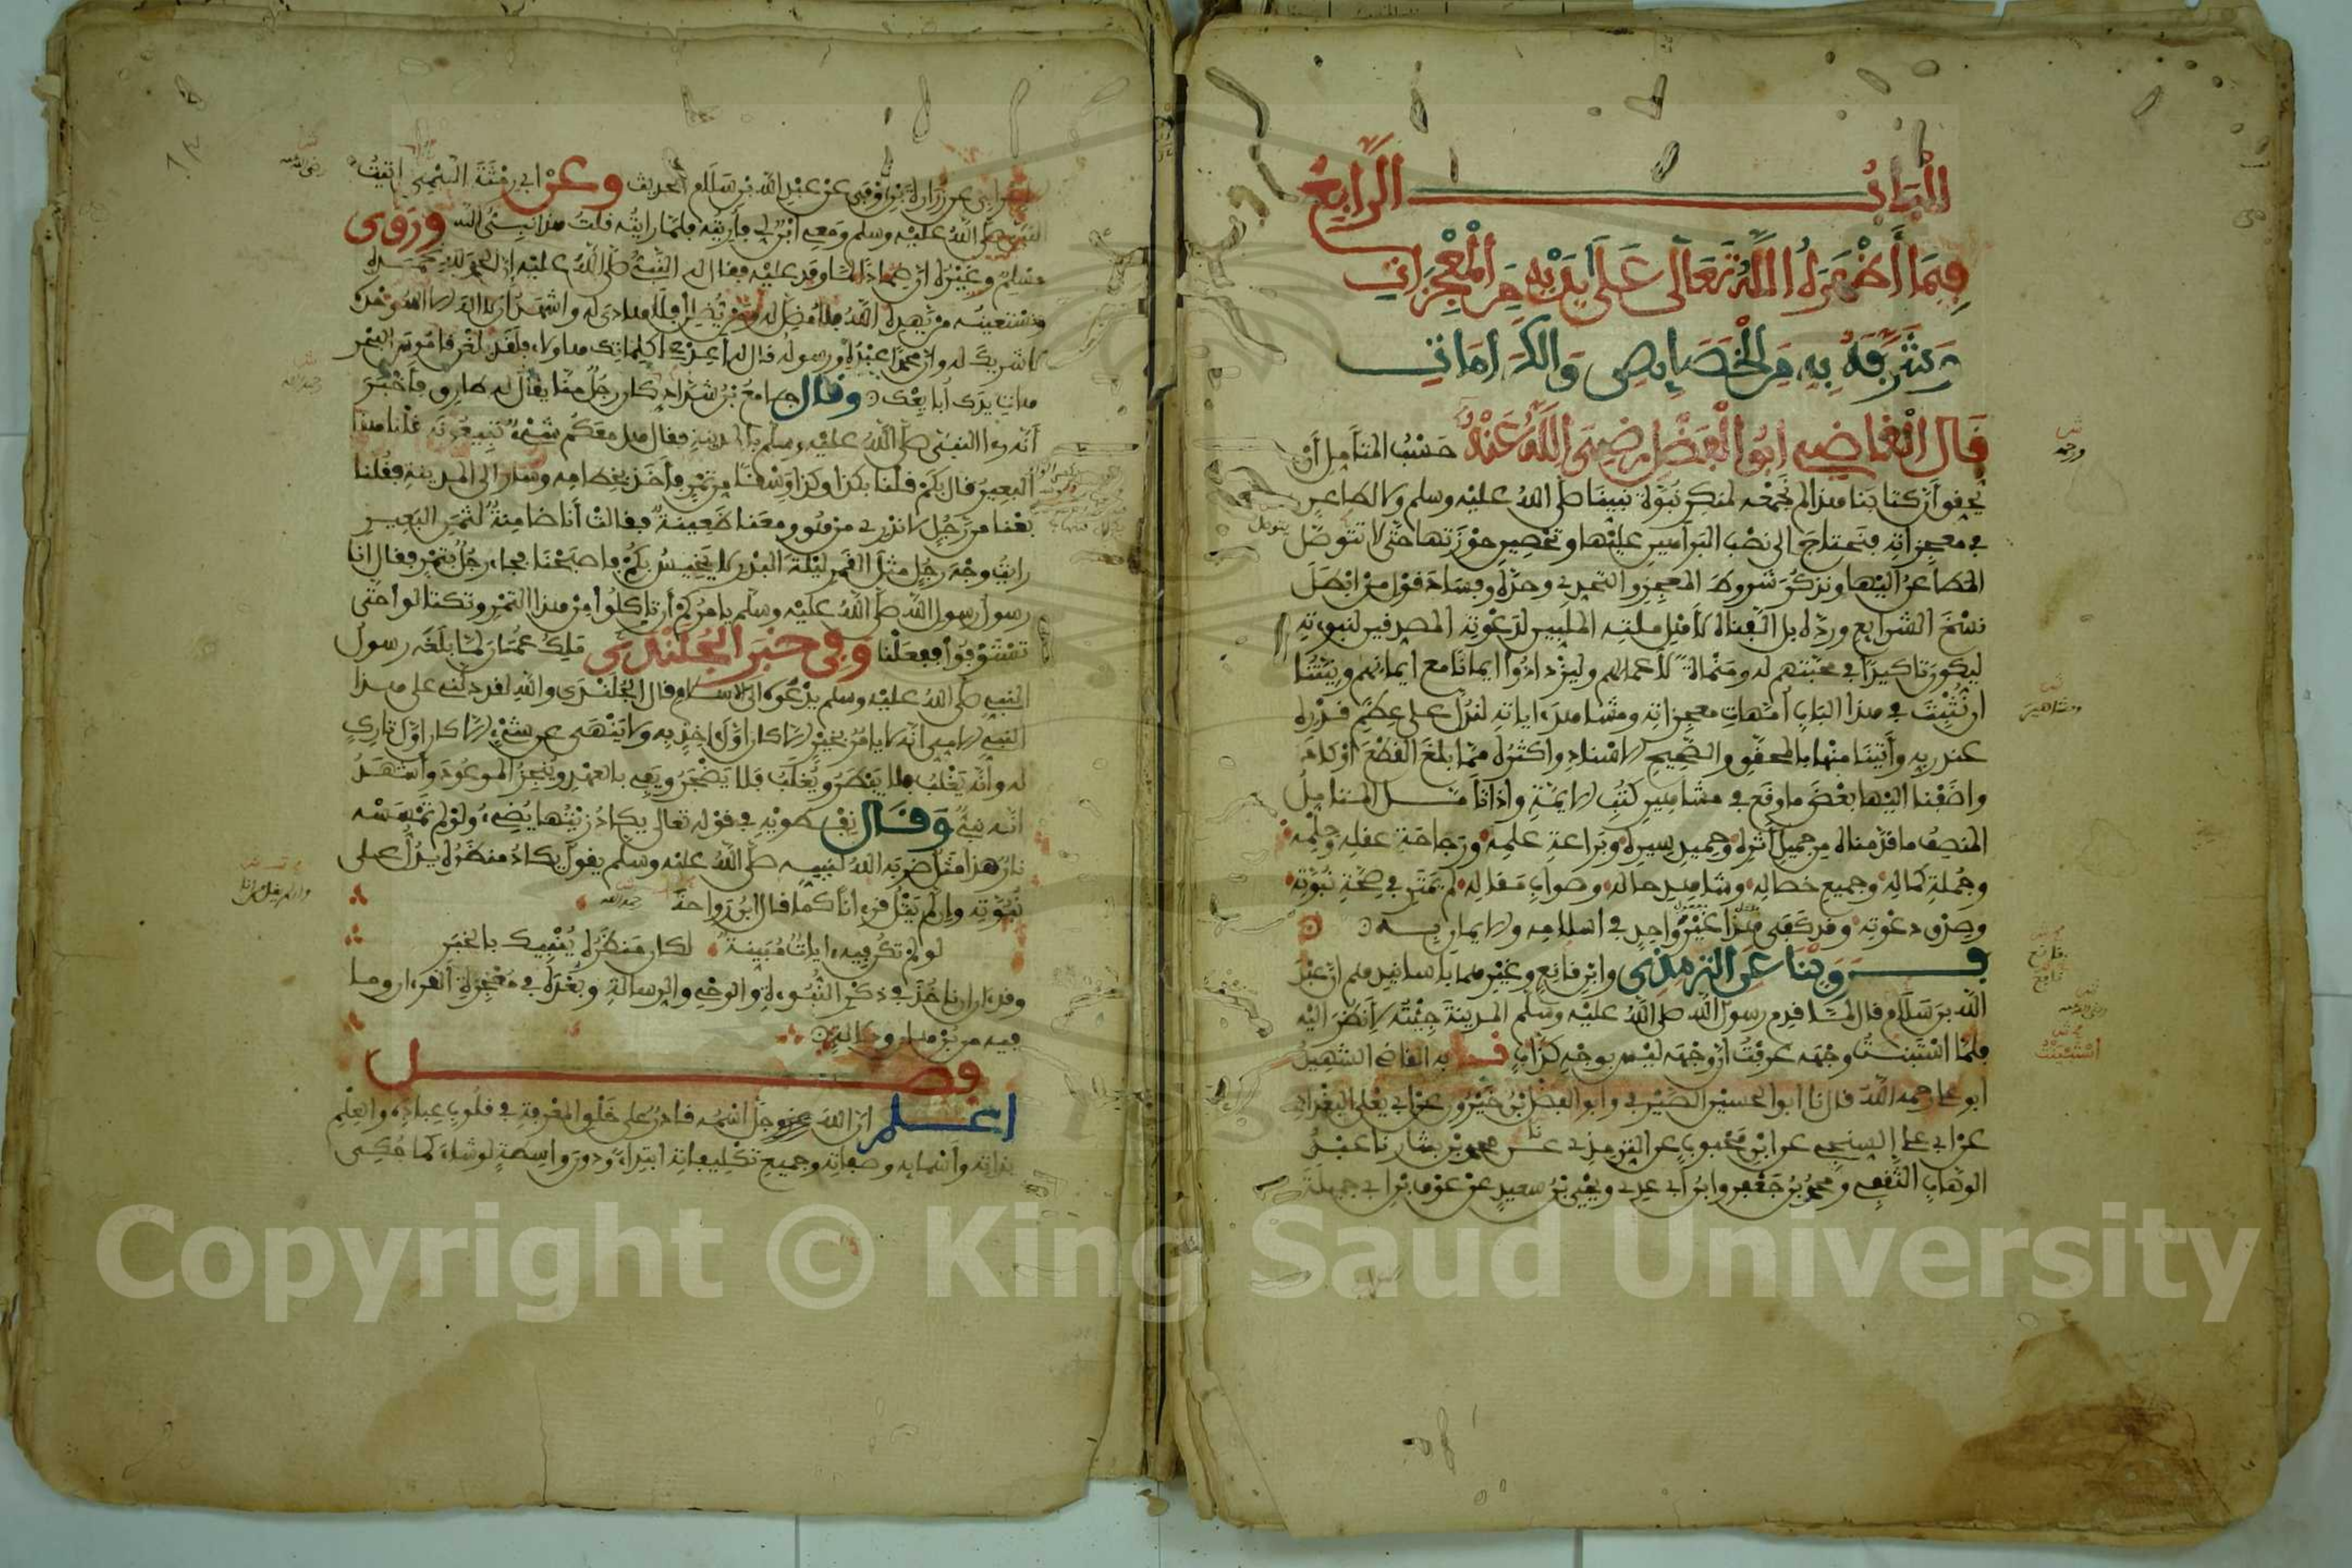 الْبَابُ الرَّابِعُ
فِيمَا أَظْهَرَهُ اللَّهُ تَعَالَى عَلَى يَدَيْهِ مِنَ الْمُعْجِزَاتِ
وَشَرَّفَهُ بِهِ مِنَ الْخَصَايِصِ وَالْكَرَامَاتِ
قَالَ الْقَاضِي أَبُو الْفَضْلِ رَضِيَ اللَّهُ عَنْهُ حَسْبُ المتأمل أن
يحقق أن كتابنا هذا لم نجمعه لمنكر نبوة نبينا صلى الله عليه وسلم ولا لطاعن
في معجزاته فنحتاج الى نصب البراهين عليها وتحصين حوزتها حتى لا يتوصل
المطاعن اليها ونذكر شروط المعجز والتحدي وحده وفساد قول من ابطل
نسخ الشرايع ورده بل الفناه لأهل ملته الملبين لدعوته المصدقين لنبوته
ليكون تاكيدا في محبتهم له ومنماة لأعمالهم وليزدادوا ايمانا مع ايمانهم ونيتنا
ان نثبت في هذا الباب أمهات معجزاته ومشاهير اياته لتدل على عظم قدره
عند ربه وأتينا منها بالمحقق والصحيح الاسناد واكثره مما بلغ القطع او كاد
واضفنا اليها بعض ما وقع في مشاهير كتب الايمة واذا تأمل المتامل
المنصف ما قدمناه من جميل أثره وحميد سيره وبراعة علمه ورجاحة عقله وحلمه
وجملة كماله وجميع خصاله وشاهد حاله وصواب مقاله لم يمتر في صحة نبوته
وصدق دعوته وقد كفى هذا غير واحد في اسلامه والايمان به
فروينا عن الترمذي وابن قانع وغيرهما بأسانيدهم ان عبد
الله بن سلام قال لما قدم رسول الله صلى الله عليه وسلم المدينة جئته لأنظر اليه
فلما استبنت وجهه عرفت أن وجهه ليس بوجه كذاب نا به القاضي الشهيد
ابو علي رحمه الله قال نا ابو الحسين الصيرفي وابو الفضل بن خيرون عن ابي يعلى البغدادي
عن ابي علي السنجي عن ابن محبوب عن الترمذي نا محمد بن بشار نا عبد
الوهاب الثقفي ومحمد بن جعفر وابن أبي عدي ويحيى بن سعيد عن عوف بن ابي جميلة
الاعرابي عن زرارة بن اوفى عن عبد الله بن سلام الحديث وعن ابي رمثة التيمي اتيت
النبي صلى الله عليه وسلم ومعي ابن لي فأريته فلما رايته قلت هذا نبي الله وروى
مسلم وغيره ان ضمادا لما وفد عليه فقال له النبي صلى الله عليه إن الحمد لله نحمده
ونستعينه من يهده الله فلا مضل له ومن يضلل فلا هادي له واشهد ان لا اله الا الله وحده
لا شريك له وان محمدا عبده ورسوله قال له أعد علي كلماتك هؤلاء فلقد بلغن قاموس البحر
هات يدك أبايعك وقال جامع بن شداد كان رجل منا يقال له طارق فأخبر
أنه رءا النبي صلى الله عليه وسلم بالمدينة فقال هل معكم شيء تبيعونه قلنا هذا
البعير قال بكم قلنا بكذا وكذا وسقا من تمر فأخذ بخطامه وسار الى المدينة فقلنا
بعنا من رجل لا ندري من هو ومعنا ظعينة فقالت أنا ضامنة لثمن البعير
رايت وجه رجل مثل القمر ليلة البدر لا يخيس بكم فاصبحنا فجاء رجل بتمر فقال انا
رسول رسول الله صلى الله عليه وسلم يامركم أن تاكلوا من هذا التمر وتكتالوا حتى
تستوفوا ففعلنا وفي خبر الجلندي ملك عمان لما بلغه رسول
النبي صلى الله عليه وسلم يدعوه الى الاسلام قال الجلندي والله لقد دلني على هذا
النبي الامي انه لا يامر بخير الا كان اول اخذ به ولا ينهى عن شيء الا كان اول تارك
له وانه يغلب فلا يبطر ويغلب فلا يضجر ويفي بالعهد وينجز الموعود وأشهد
انه نبي وقال نفطويه في قوله تعالى يكاد زيتها يضيء ولو لم تمسسه
نار هذا مثل ضربه الله لنبيه صلى الله عليه وسلم يقول يكاد منظره يدل على
نبوته وان لم يتل قرءانا كما قال ابن رواحة
لو لم تكن فيه ءايات مبينة لكان منظره ينبيك بالخبر
وقد ءان ان ناخذ في ذكر النبوءة والوحي والرسالة وبعده في معجزة القرءان وما
فيه من برهان ودلالة
فصل
اعلم ان الله عز وجل اسمه قادر على خلق المعرفة في قلوب عباده والعلم
بذاته وأسمايه وصفاته وجميع تكليفاته ابتداء ودون واسطة لو شاء كما حكي
Copyright © King Saud University